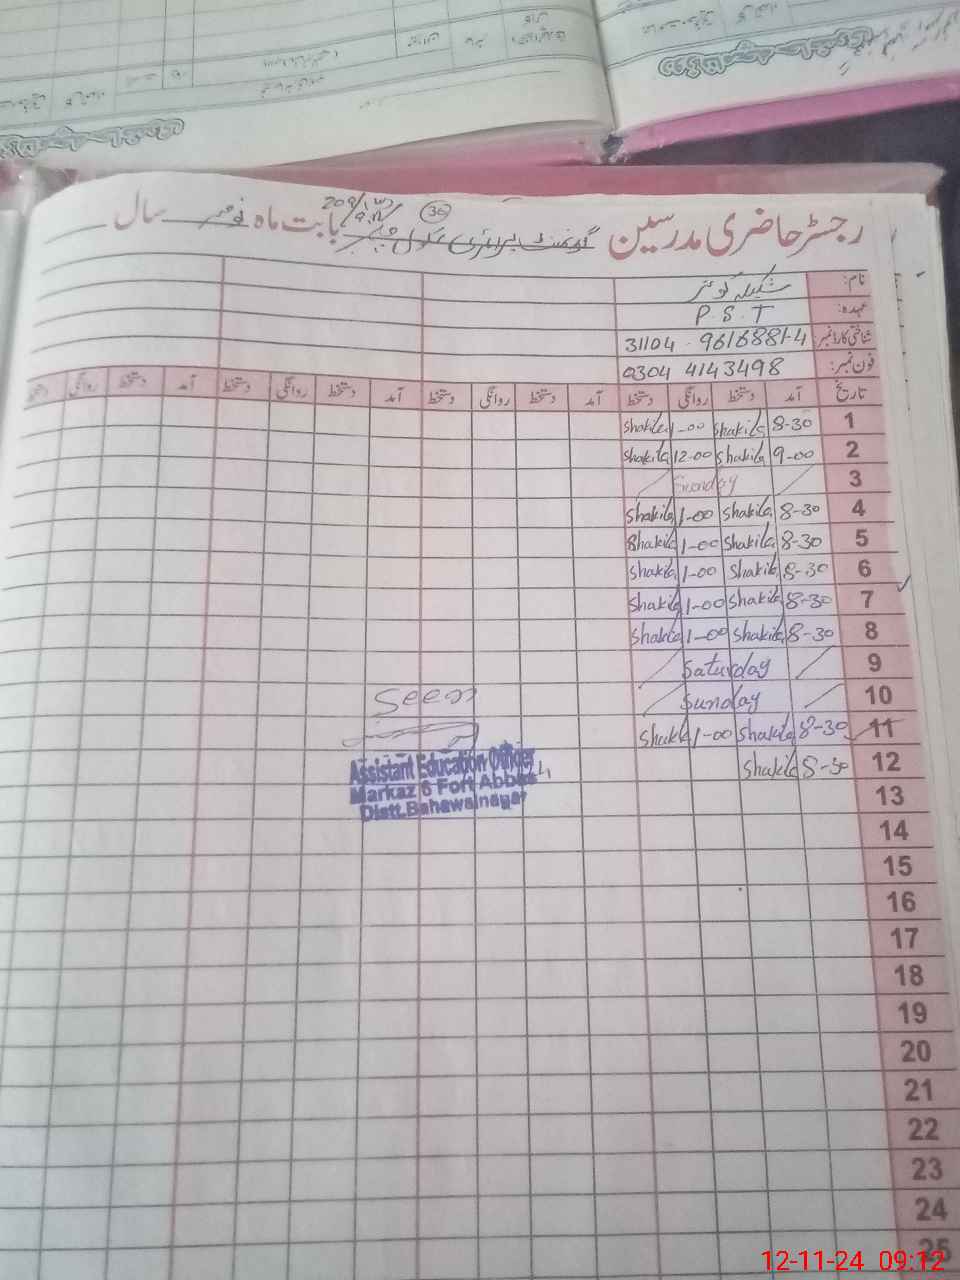 رجسٹر حاضری مدرسین گورنمنٹ پرائمری سکول بابت ماہ نومبر سال
36
نام: شکیلہ کوثر
عہدہ: P.S.T
شناختی کارڈ نمبر: 31104-9616881-4
فون نمبر: 0304 4143498
تاریخ آمد دستخط روانگی دستخط آمد دستخط روانگی دستخط آمد دستخط روانگی دستخط آمد دستخط روانگی دستخط
1 8-30 Shakila 1-00 Shakila
2 9-00 Shakila 12-00 Shakila
3 Sunday
4 8-30 Shakila 1-00 Shakila
5 8-30 Shakila 1-00 Shakila
6 8-30 Shakila 1-00 Shakila
7 8-30 Shakila 1-00 Shakila
8 8-30 Shakila 1-00 Shakila
9 Saturday
10 Sunday
11 8-30 Shakila 1-00 Shakila
12 8-30 Shakila
13
14
15
16
17
18
19
20
21
22
23
24
25
Seen
Assistant Education Officer
Markaz 6 Fort Abbas
Distt. Bahawalnagar
12-11-24 09:12